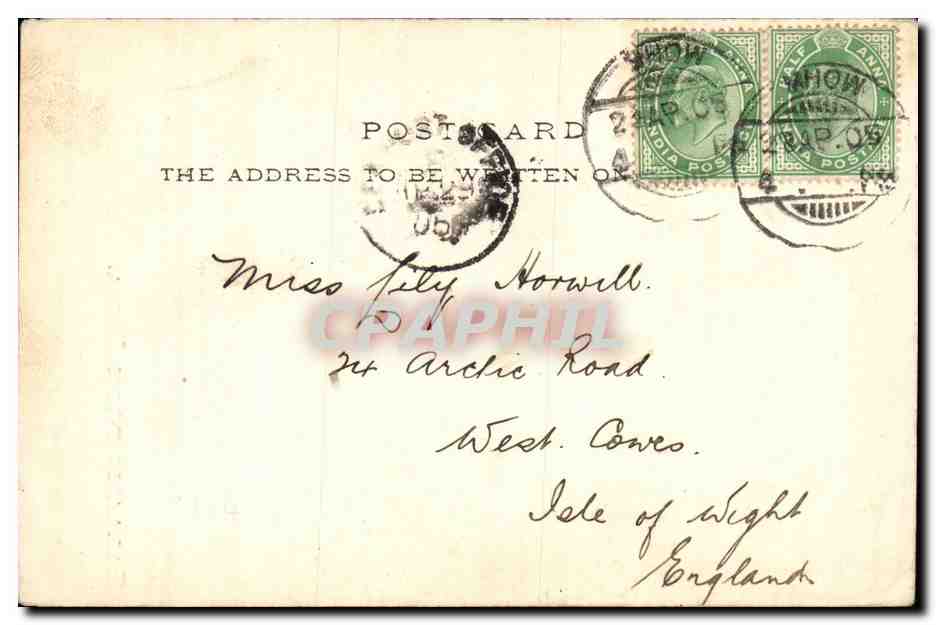 HALF ANNA
MHOW
MHOW
AP. 05
AP. 05
4 PM
INDIA POSTAGE
POST CARD
THE ADDRESS TO BE WRITTEN ON
05
Miss Lily Horwill.
CPAPHIL
24 Arctic Road.
West. Cowes.
Isle of Wight
England